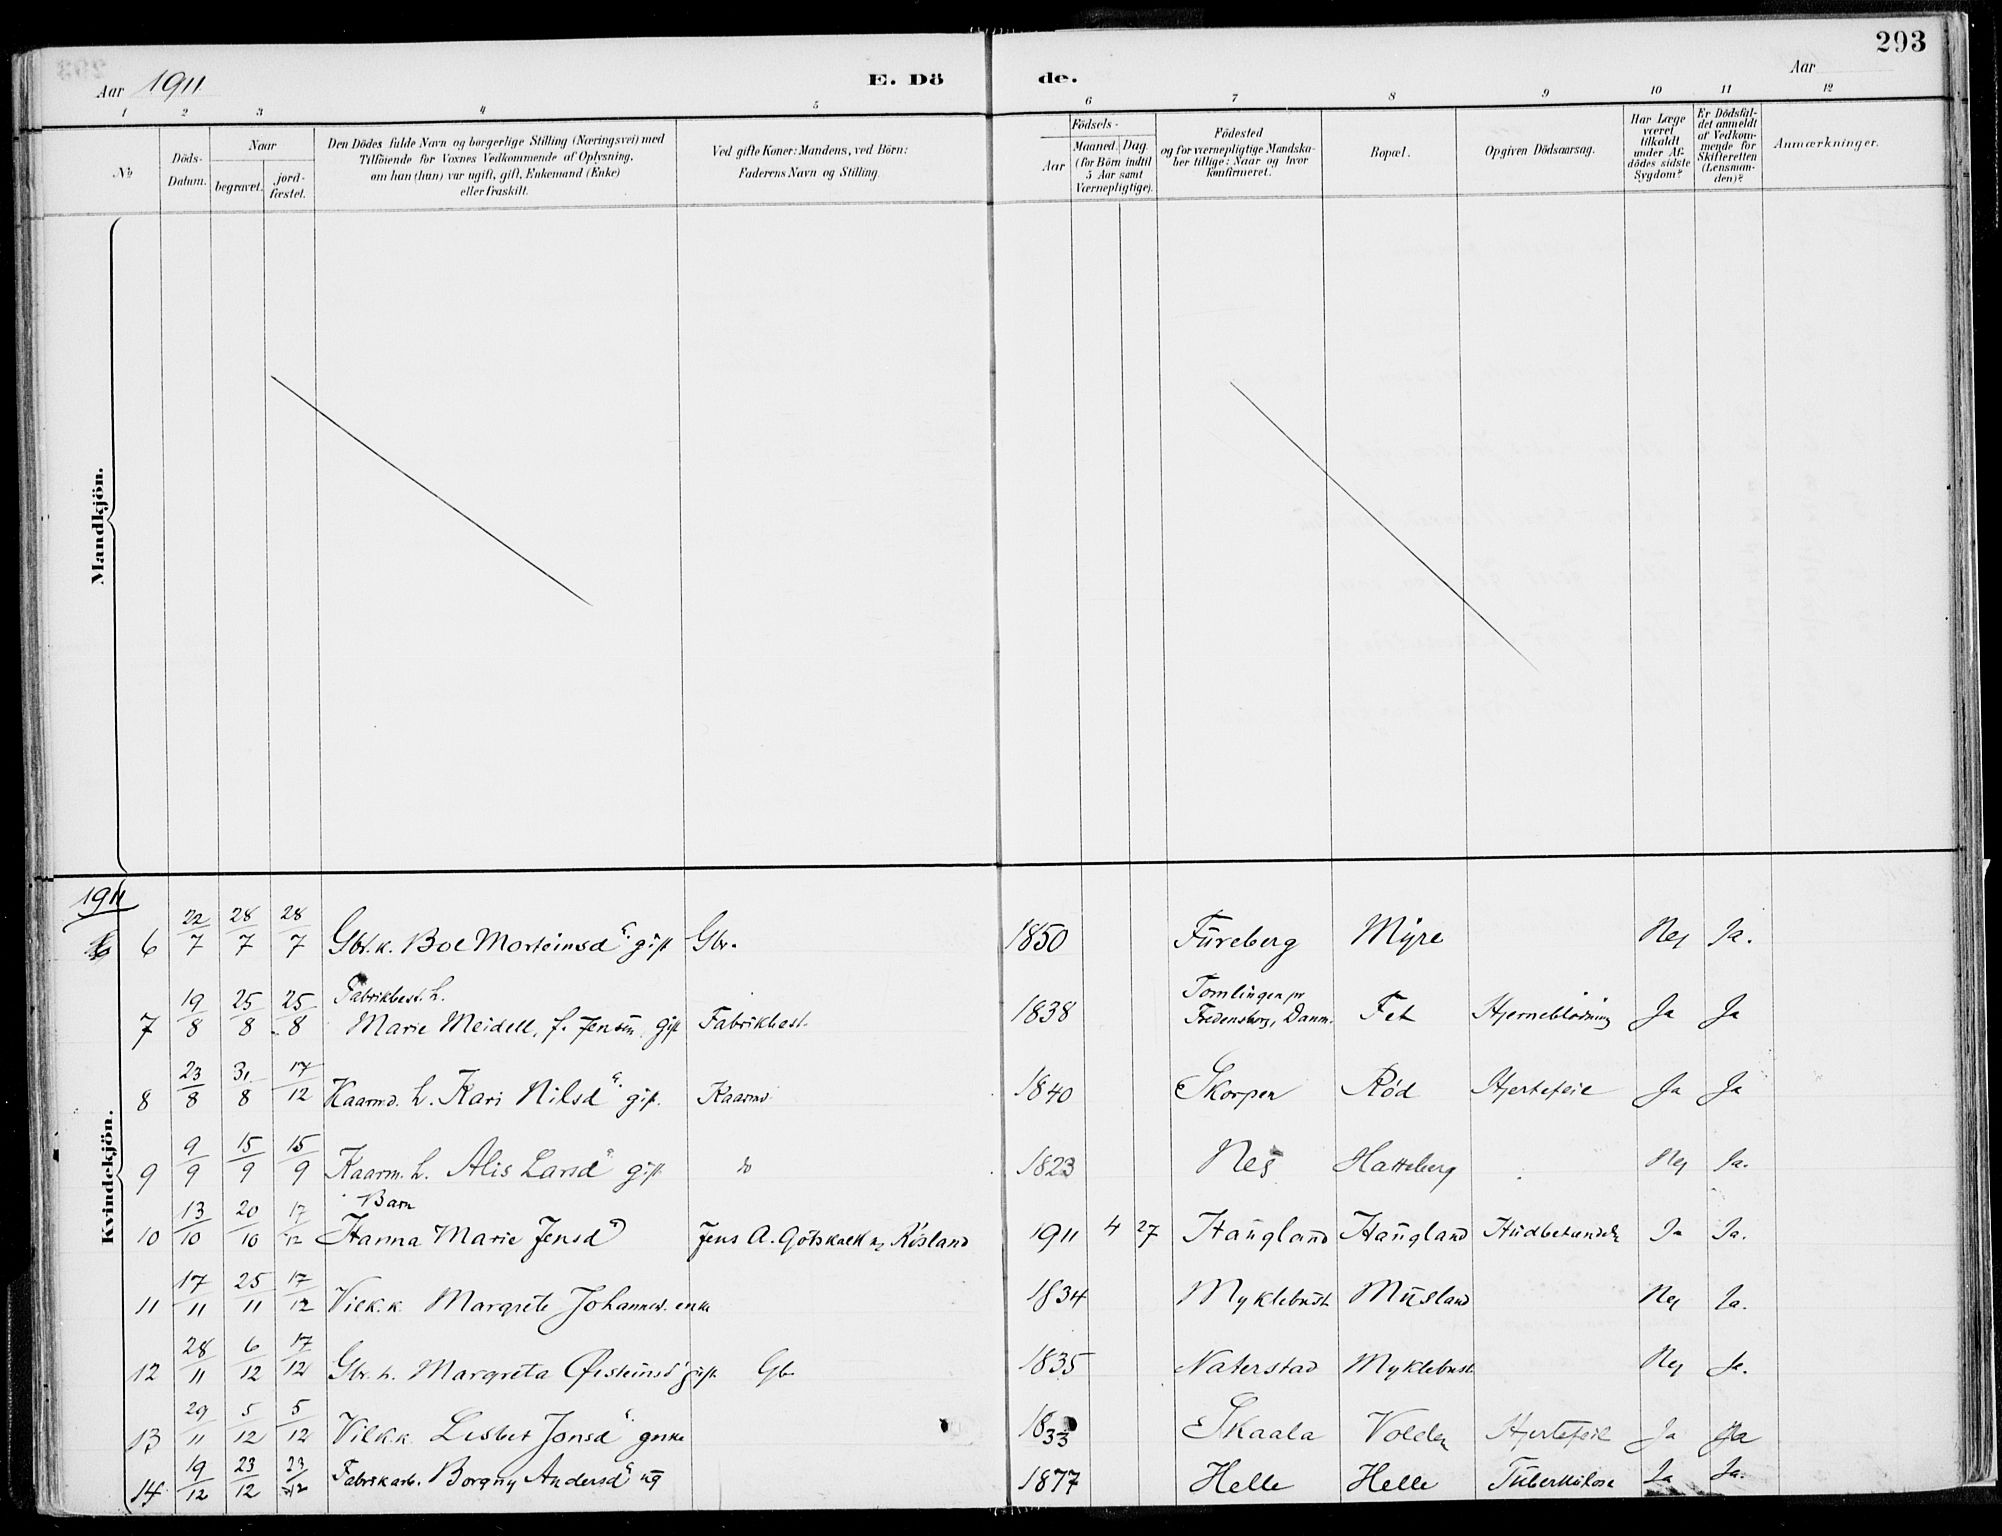 293
Aar 1911
E. Dö
de.
Aar
1 2 3 4 5 6 7 8 9 10 11 12
No
Döds-Datum.
Naar
begravet.
jord-fæstet.
Den Dödes fulde Navn og borgerlige Stilling (Næringsvei) med
Tilföiende for Voxnes Vedkommende af Oplysning,
om han (hun) var ugift, gift, Enkemand (Enke)
eller fraskilt.
Ved gifte Koner: Mandens, ved Börn:
Faderens Navn og Stilling.
Födsels-
Aar
Maaned. Dag.
(for Börn indtil
5 Aar samt
Værnepligtige).
Födested
og for værnepligtige Mandska-
ber tillige: Naar og hvor
konfirmeret.
Bopæl.
Opgiven Dödsaarsag.
Har Læge
været
tilkaldt
under Af-
dödes sidste
Sygdom?
Er Dödsfal-
det anmeldt
af Vedkom-
mende for
Skifteretten
(Lensman-
den)?
Anmærkninger.
Mandkjön.
Kvindekjön.
1911
6 22/7 28/7 28/7 Gbr.k. Boe Morteinsd. gift Gbr. 1850 Fureberg Myre Nej Ja.
7 19/8 25/8 25/8 Fabrikbest. h. Marie Meidell, f. Jensen. gift Fabrikbest. 1838 Tomlingen pr Fredensborg, Danm. Fet Hjerneblödning Ja Ja
8 23/8 31/8 17/12 Kaarmd. h. Kari Nilsd. gift. Kaarmd. 1840 Skorpen Röd Hjertefeil Ja Ja
9 9/9 15/9 15/9 Kaarm. h. Alis Larsd. gift do 1823 Nes Hatteberg Nej Ja.
10 13/10 20/10 17/12 Barn Hanna Marie Jensd. Jens A. Götskalk Røsland 1911 4 27 Haugland Haugland Hudbetændelse Ja Ja.
11 17/11 25/11 17/12 Vilk.k. Margrete Johannesd. enke 1834 Myklebust Musland Nej Ja.
12 28/11 6/12 17/12 Gbr. h. Margreta Øisteinsd. gift Gbr 1835 Naterstad Myklebust Nej Ja.
13 29/11 5/12 5/12 Vilk.k. Lisbet Jonsd. 1833 Skaala Volden Hjertefeil Ja Ja
14 19/12 23/12 23/12 Fabrikarb. Borgny Andersd. ug 1877 Helle Helle Tuberkulose Ja Ja.